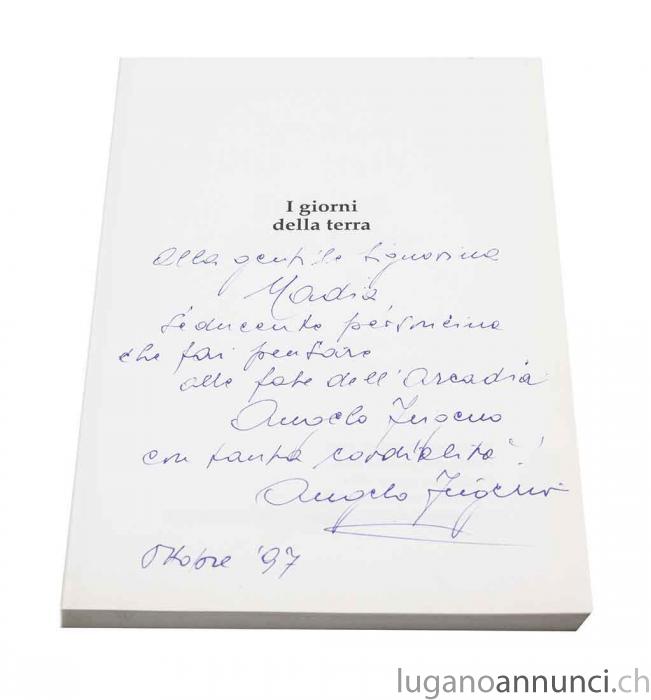 I giorni
della terra
alla gentile Signorina
Nadia
seducente personcina
che fai pensare
alle fate dell'Arcadia
Angelo
con tanta cordialità!
Angelo
Ottobre '97
luganoannunci.ch